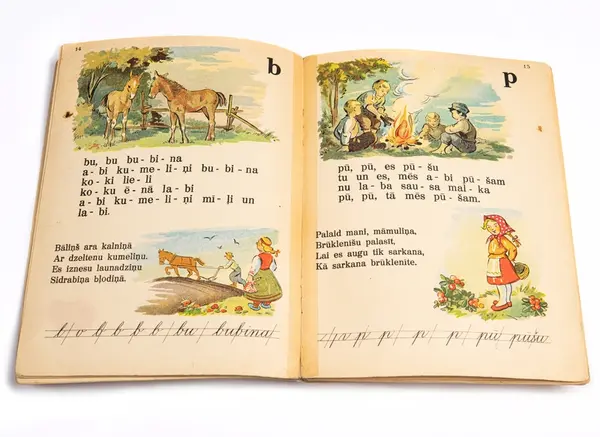 14
b
bu, bu bu - bi - na
a - bi ku - me - li - ņi bu - bi - na
ko - ki lie - li
ko - ku ē - nā la - bi
a - bi ku - me - li - ņi mī - ļi un
la - bi.
Bāliņš ara kalniņā
Ar dzeltenu kumeliņu.
Es iznesu launadziņu
Sidrabiņa bļodiņā.
b b b b b b bu bubina
15
p
pū, pū, es pū - šu
tu un es, mēs a - bi pū - šam
nu la - ba sau - sa mal - ka
pū, pū, tā mēs pū - šam.
Palaid mani, māmuliņa,
Brūklenīšu palasīt,
Lai es augu tik sarkana,
Kā sarkana brūklenīte.
p p p p p pū pūšu